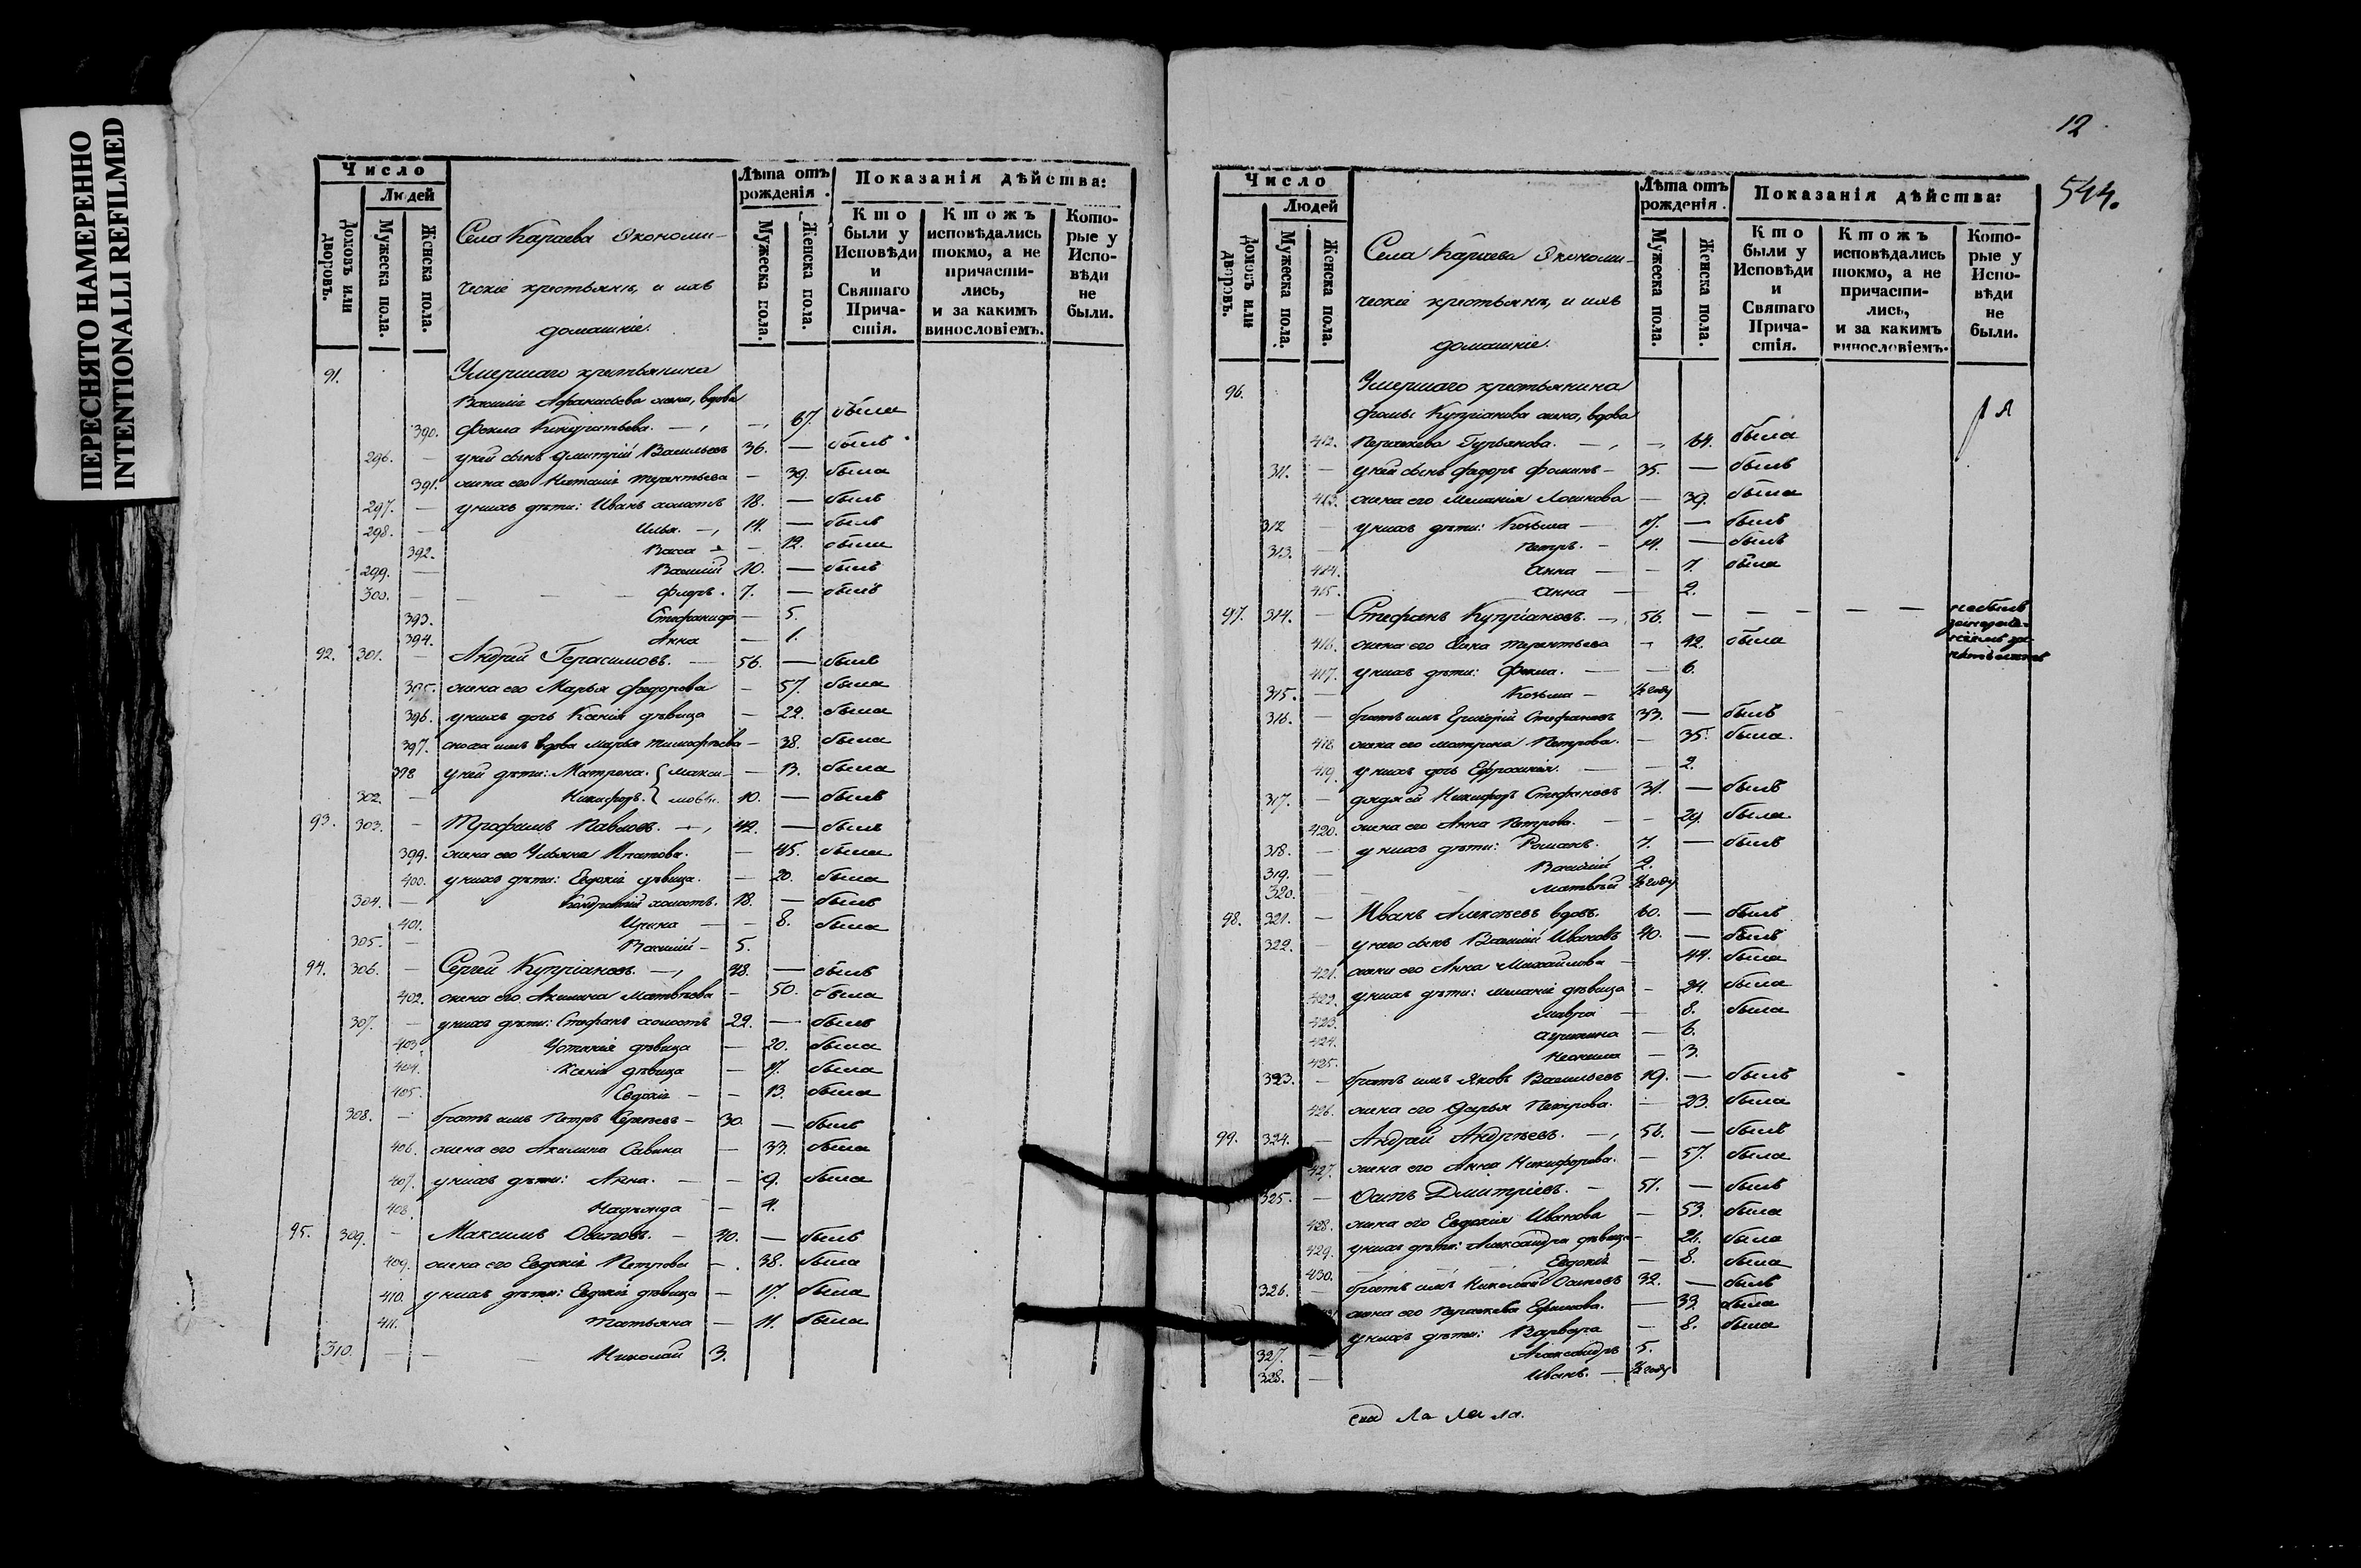 ПЕРЕСНЯТО НАМЕРЕННО
INTENTIONALLI REFILMED
Число
Людей
Домовъ или дворовъ.
Мужеска пола.
Женска пола.
Села Караева Экономи-
ческіе крестьяня, и ихъ
домашніе.
Лѣта отъ рожденія.
Мужеска пола.
Женска пола.
Показанія дѣйства:
Кто были у Исповѣди и Святаго Причастія.
Ктожъ исповѣдались токмо, а не причастились, и за какимъ винословіемъ.
Которые у Исповѣди не были.
91. Умершаго крестьянина
Василія Афанасьева жена, вдова
390. Фекла Кондратьева. — 67. была
296. — у ней сынъ Дмитрій Васильевъ 36. — былъ
391. жена его Наталія Терентьева — 39. была
297. — у нихъ дѣти: Иванъ холостъ 18. — былъ
298. — Илья. — 14. — былъ
392. Васса — 12. была
299. — Василій 10. — былъ
300. — Федоръ. 7. — былъ
393. Стефанида — 5.
394. Анна — 1.
92. 301. — Андрей Герасимовъ. — 56. — былъ
395. жена его Марья Федорова — 57. была
396. у нихъ дочь Ксенія дѣвица — 22. была
397. сноха имъ вдова Марья Тимофѣева — 38. была
398 у ней дѣти: Матрона. { Макси- — 13. была
302. — Никифоръ. { мовы. 10. — былъ
93. 303. — Трофимъ Павловъ. — 42. — былъ
399. жена его Ульяна Игнатова. — 45. была
400. у нихъ дѣти: Евдокія дѣвица. — 20. была
304. — Кондратій холостъ. 18. — былъ
401. Ирина — 8. была
305. — Василій — 5.
94. 306. — Сергей Купріяновъ — 48. — былъ
402. жена его Акилина Матвѣева — 50. была
307. — у нихъ дѣти: Стефанъ холостъ 22. — былъ
403. Устинія дѣвица — 20. была
404. Ксенія дѣвица — 17. была
405. Евдокія — 13. была
308. — братъ имъ Петръ Сергѣевъ — 30. — былъ
406. жена его Акилина Савина — 33. была
407. у нихъ дѣти: Анна. — 9. была
408. Надежда — 4.
95. 309. — Максимъ Осиповъ. — 40. — былъ
409. жена его Евдокія Петрова — 38. была
410. у нихъ дѣти: Евдокія дѣвица — 17. была
411. Татьяна — 11. была
310. — Николай 3.
12
544.
Число
Людей
Домовъ или дворовъ.
Мужеска пола.
Женска пола.
Села Караева Экономи-
ческіе крестьяня, и ихъ
домашніе.
Лѣта отъ рожденія.
Мужеска пола.
Женска пола.
Показанія дѣйства:
Кто были у Исповѣди и Святаго Причастія.
Ктожъ исповѣдались токмо, а не причастились, и за какимъ винословіемъ.
Которые у Исповѣди не были.
96. Умершаго крестьянина
Фомы Купріанова жена, вдова
412. Параскева Гурьянова. — 64. была
311. — у ней сынъ Федоръ Фоминъ — 35. — былъ
413. жена его Меланія Логинова — 39. была
312 — у нихъ дѣти: Козьма — 17. — былъ
313. — Петръ. — 14. — былъ
414. Анна — 7. была
415. Анна — 2.
97. 314. — Стефанъ Купріановъ. — 56. — — — — — не былъ
416. жена его Анна Терентьева — 42. была
417. у нихъ дѣти: Фекла. — 6.
315. — Козьма — ½ году
316. — братъ имъ Григорій Стефановъ 33. — былъ
418 жена его Матрона Петрова. — 35. была.
419. у нихъ дочь Ефросинія. — 2.
317. — дядя ей Никифоръ Стефановъ 31. — былъ
420. жена его Анна Петрова. — 29. была
318. — у нихъ дѣти: Романъ. 7. — былъ
319. — Василій 2.
320. — Матвѣй ½ году
98. 321. — Иванъ Алексѣевъ вдовъ. 60. — былъ
322. — у него сынъ Василій Ивановъ 40. — былъ
421. жена его Анна Михайлова — 44. была
422. у нихъ дѣти: Меланія дѣвица — 24. была
423. Мавра — 8. была
424. Агрипина — 6.
425. Неонила — 3.
323. — братъ имъ Яковъ Васильевъ 19. — былъ
426. жена его Дарья Петрова. — 23. была
99. 324. — Андрей Андрѣевъ. — 56. — былъ
427. жена его Анна Никифорова. — 57. была
325. — Осипъ Дмитріевъ. — 51. — былъ
428. жена его Евдокія Иванова — 53. была
429. у нихъ дѣти: Александра дѣвица — 21. была
430. Евдокія — 8. была
326. — братъ имъ Николай Осиповъ 32. — былъ
жена его Параскева Ефимова. — 33. была
у нихъ дѣти: Варвара — 8. была
327. — Александръ 5.
328. — Иванъ. — ½ году